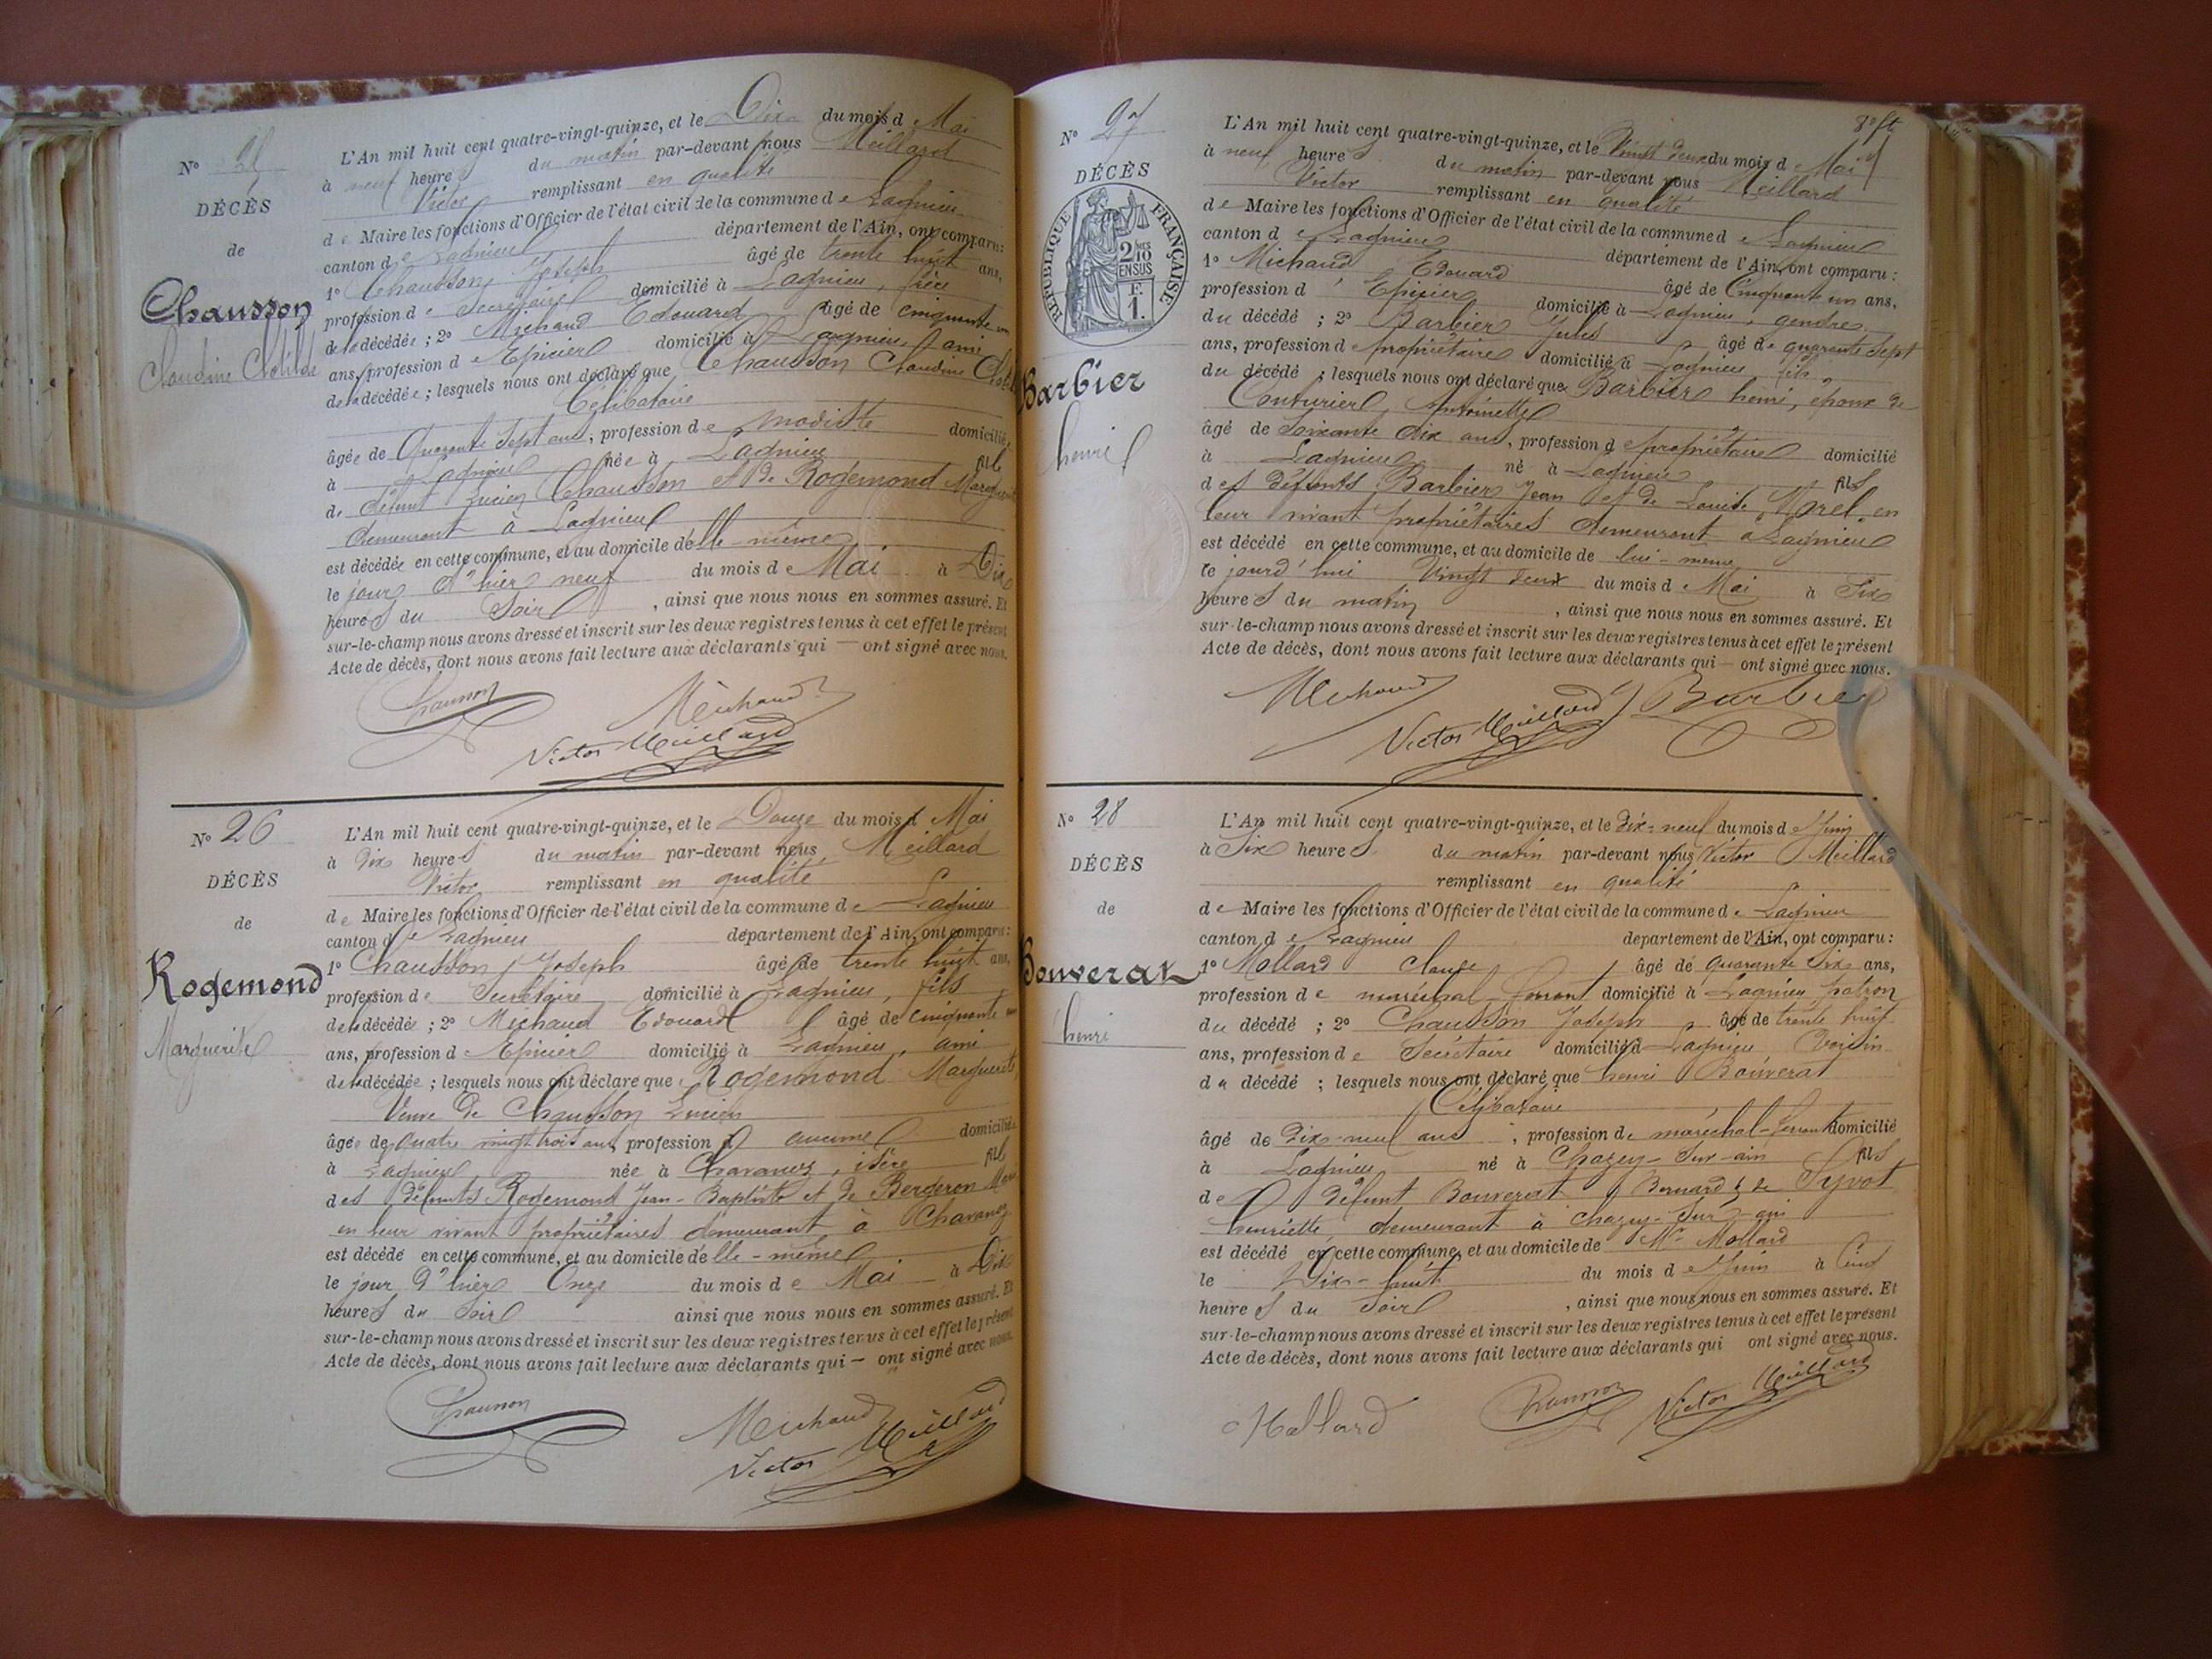 N° 25
DÉCÈS
de
Chausson
Claudine Clotilde
L'An mil huit cent quatre-vingt-quinze, et le Dix du mois de Mai
à neuf heures du matin par-devant nous Meillard
Victor remplissant en qualité
de Maire les fonctions d'Officier de l'état civil de la commune de Lagnieu
canton de Lagnieu département de l'Ain, ont comparu:
1° Chausson Joseph âgé de trente huit ans,
profession de Secrétaire domicilié à Lagnieu, frère
de la décédée ; 2° Michaud Edouard âgé de cinquante un
ans, profession d'Epicier domicilié à Lagnieu, ami
de la décédée ; lesquels nous ont déclaré que Chausson Claudine Clotilde
Célibataire
âgée de Quarante Sept ans, profession de modiste domiciliée
à Lagnieu née à Lagnieu fille
de défunt Lucien Chausson et de Rogemond Marguerite
demeurant à Lagnieu
est décédée en cette commune, et au domicile d'elle même
le jour d'hier neuf du mois de Mai à Dix
heures du Soir , ainsi que nous nous en sommes assuré. Et
sur-le-champ nous avons dressé et inscrit sur les deux registres tenus à cet effet le présent
Acte de décès, dont nous avons fait lecture aux déclarants qui — ont signé avec nous.
Chausson Michaud
Victor Meillard
N° 26
DÉCÈS
de
Rogemond
Marguerite
L'An mil huit cent quatre-vingt-quinze, et le Douze du mois de Mai
à Dix heures du matin par-devant nous Meillard
Victor remplissant en qualité
de Maire les fonctions d'Officier de l'état civil de la commune de Lagnieu
canton de Lagnieu département de l'Ain, ont comparu:
1° Chausson Joseph âgé de trente huit ans,
profession de Secrétaire domicilié à Lagnieu, fils
de la décédée ; 2° Michaud Edouard âgé de cinquante un
ans, profession d'Epicier domicilié à Lagnieu, ami
de la décédée ; lesquels nous ont déclaré que Rogemond Marguerite
Veuve de Chausson Lucien
âgée de quatre vingt trois ans, profession d aucune domiciliée
à Lagnieu née à Chavanoz, isère fille
des défunts Rogemond Jean-Baptiste et de Bergeron
en leur vivant propriétaires demeurant à Chavanoz
est décédé en cette commune, et au domicile d'elle-même
le jour d'hier Onze du mois de Mai à Dix
heures du Soir ainsi que nous nous en sommes assuré. Et
sur-le-champ nous avons dressé et inscrit sur les deux registres tenus à cet effet le présent
Acte de décès, dont nous avons fait lecture aux déclarants qui — ont signé avec nous.
Chausson Michaud
Victor Meillard
N° 27
DÉCÈS
RÉPUBLIQUE FRANÇAISE
2/10 EN SUS
F. 1.
Barbier
henri
L'An mil huit cent quatre-vingt-quinze, et le Vingt deux du mois de Mai
à neuf heures du matin par-devant nous Meillard
Victor remplissant en qualité
de Maire les fonctions d'Officier de l'état civil de la commune de Lagnieu
canton de Lagnieu département de l'Ain, ont comparu :
1° Michaud Edouard âgé de Cinquante un ans,
profession d'Epicier domicilié à Lagnieu, gendre
du décédé ; 2° Barbier Jules âgé de quarante Sept
ans, profession de propriétaire domicilié à Lagnieu fils
du décédé ; lesquels nous ont déclaré que Barbier henri, époux de
Couturier, Antoinette
âgé de Soixante dix ans, profession de propriétaire domicilié
à Lagnieu né à Lagnieu fils
des défunts Barbier Jean et de Louise Morel, en
leur vivant propriétaires demeurant à Lagnieu
est décédé en cette commune, et au domicile de lui-meme
le jourd'hui Vingt deux du mois de Mai à Six
heures du matin , ainsi que nous nous en sommes assuré. Et
sur-le-champ nous avons dressé et inscrit sur les deux registres tenus à cet effet le présent
Acte de décès, dont nous avons fait lecture aux déclarants qui — ont signé avec nous.
Michaud Barbier
Victor Meillard
N° 28
DÉCÈS
de
Bouverat
henri
L'An mil huit cent quatre-vingt-quinze, et le Dix-neuf du mois de Juin
à Six heures du matin par-devant nous Victor Meillard
remplissant en qualité
de Maire les fonctions d'Officier de l'état civil de la commune de Lagnieu
canton de Lagnieu département de l'Ain, ont comparu :
1° Mollard Claude âgé de quarante Six ans,
profession de maréchal-ferrant domicilié à Lagnieu, patron
du décédé ; 2° Chausson Joseph âgé de trente huit
ans, profession de Secrétaire domicilié à Lagnieu Voisin
du décédé ; lesquels nous ont déclaré que henri Bouverat
Célibataire
âgé de Dix-neuf ans , profession de maréchal-ferrant domicilié
à Lagnieu né à Chazey-Sur-ain fils
de défunt Bouverat Bernard & de
henriette, demeurant à Chazey-Sur-ain
est décédé en cette commune, et au domicile de Mr Mollard
le Dix-huit du mois de Juin à Cinq
heures du Soir , ainsi que nous nous en sommes assuré. Et
sur-le-champ nous avons dressé et inscrit sur les deux registres tenus à cet effet le présent
Acte de décès, dont nous avons fait lecture aux déclarants qui ont signé avec nous.
Mollard Chausson Victor Meillard